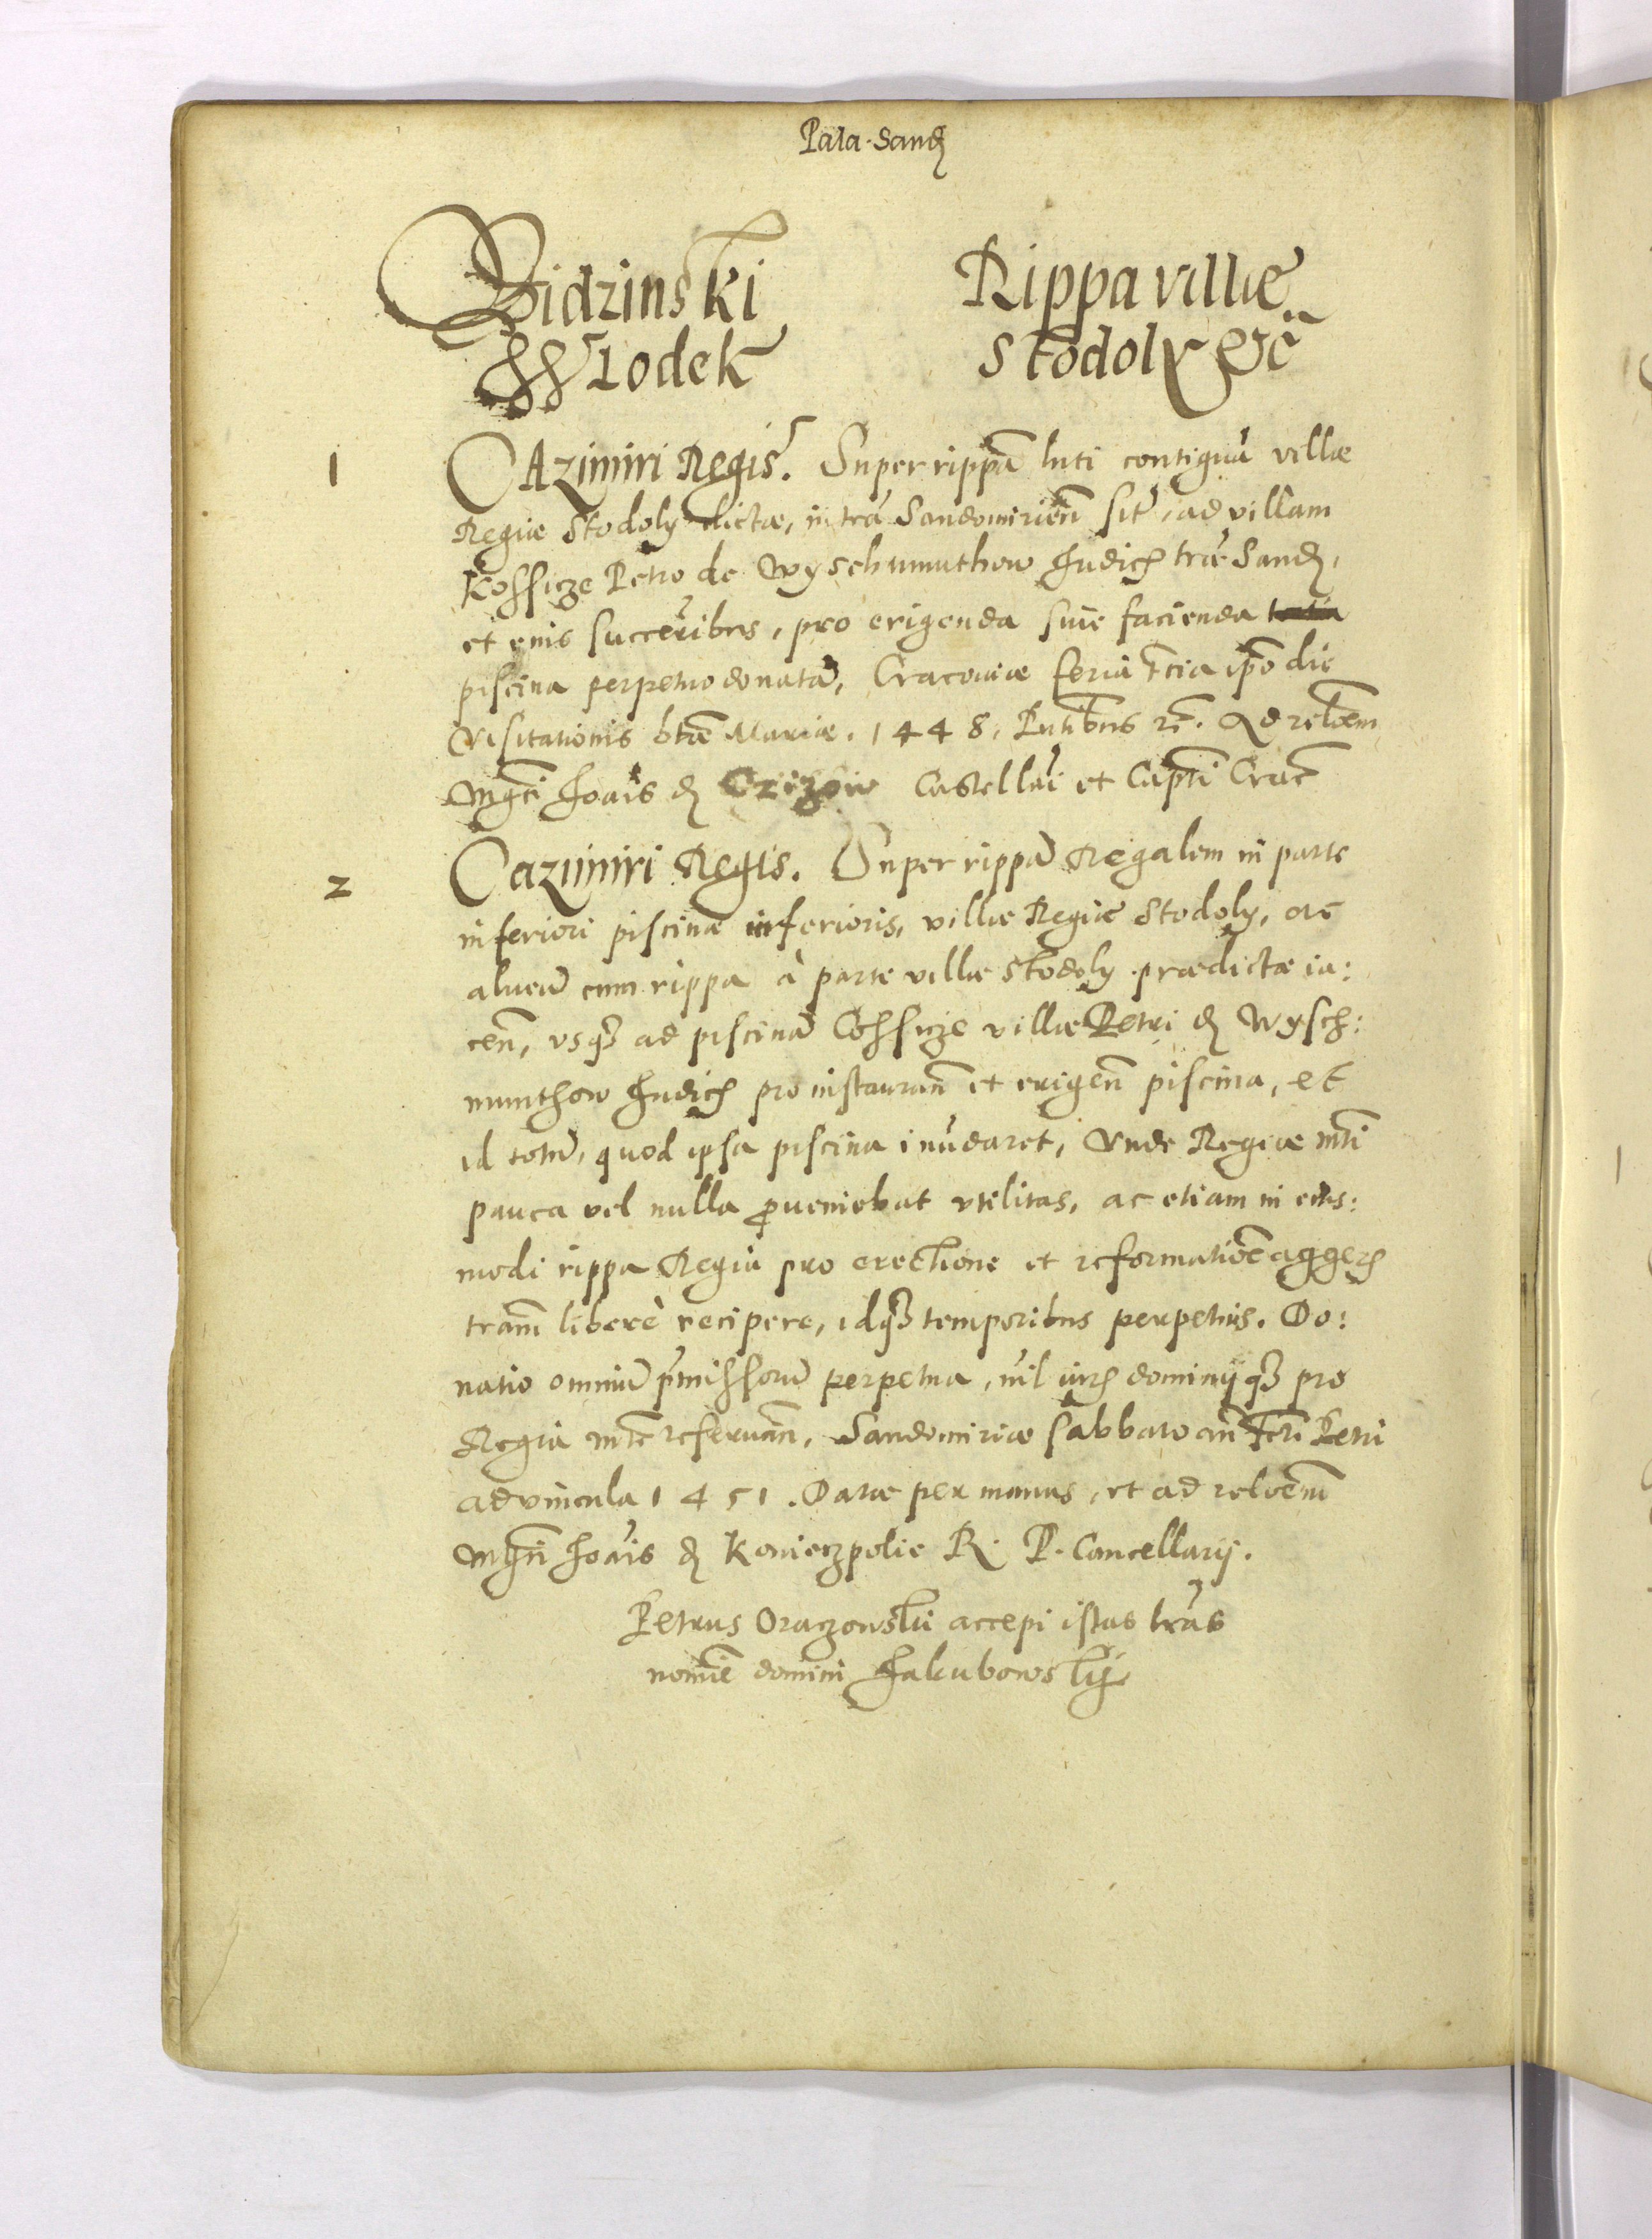 Pala. Sand
Bidzinski Rippa villæ
Wlodek Stodoly etc̃
1 CAzimiri Regis. Super rippã luti contiguã villæ
Regiæ Stodoly dictæ, in trã Sandomirieñ sit̃, ad villam
Kossicze Petro de Wyschmuthow Judici træ Sand,
et eius succerĩbus, pro erigenda siue facienda
piscina perpetuo donatã, Cracouiæ feria t̃cia ip̃o die
Visitationis btæ̃ Mariæ. 1448. Pntĩbus rẽ. Ad relõem
Mgci Joãis d Czizow Castellãi et Capti Crac
2 Cazimiri Regis. Super rippã Regalem in parte
inferiori piscinæ inferioris, villæ Regiæ Stodoly, ac
alueũ cum rippa à parte villæ Stodoly prædictæ ia:
ceñ, vsq3 ad piscinã Cossicze villæ Petri d Wysch:
munthow Judicis pro instaurañ et erigeñ piscina, et
id totũ, quod ipsa piscina inũdaret, Vnde Regiæ Mti
pauca vel nulla ꝓueniebat vtilitas, ac etiam in eius:
modi rippa Regia pro erectione et reformatiõe aggeris
trãm liberè recipere, idq3 temporibus perpetuis. Do:
natio omniũ p̃missorũ perpetua, nil iuris dominijq3 pro
Regia Mte reseruañ, Sandomiriæ Sabbato añ Petri
ad vincula 1451. Datæ per manus, et ad relõem
Mgci Joãis d Konieczpolie R. P. Cancellarij.
Petrus Oraczowski accepi istas lrãs
nomiẽ domini Jakubowskij